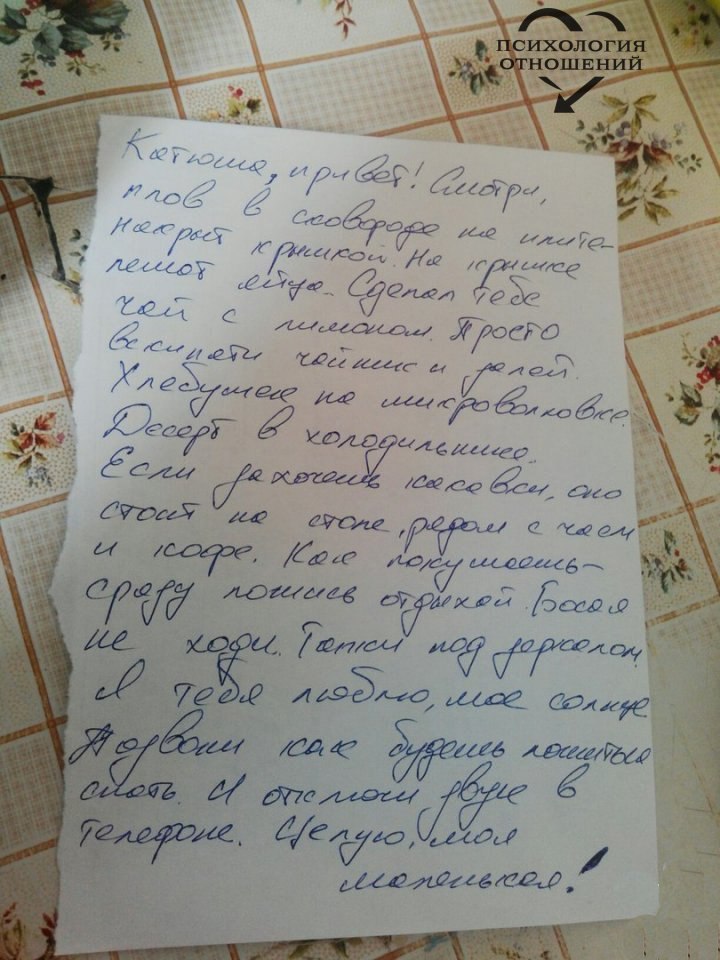 ПСИХОЛОГИЯ
ОТНОШЕНИЙ
Катюша, привет! Смотри,
плов в сковороде на плите-
накрыт крышкой. На крышке
лежат яйца. Сделал тебе
чай с лимоном. Просто
вскипяти чайник и залей.
Хлебушек на микроволновке.
Десерт в холодильнике.
Если захочешь какавки, оно
стоит на столе, рядом с чаем
и кофе. Как покушаешь-
сразу ложись отдыхай. Босая
не ходи. Тапки под зеркалом.
Я тебя люблю, мое солнце
Позвони как будешь ложиться
спать. И отключи звук в
телефоне. Целую, моя
маленькая!